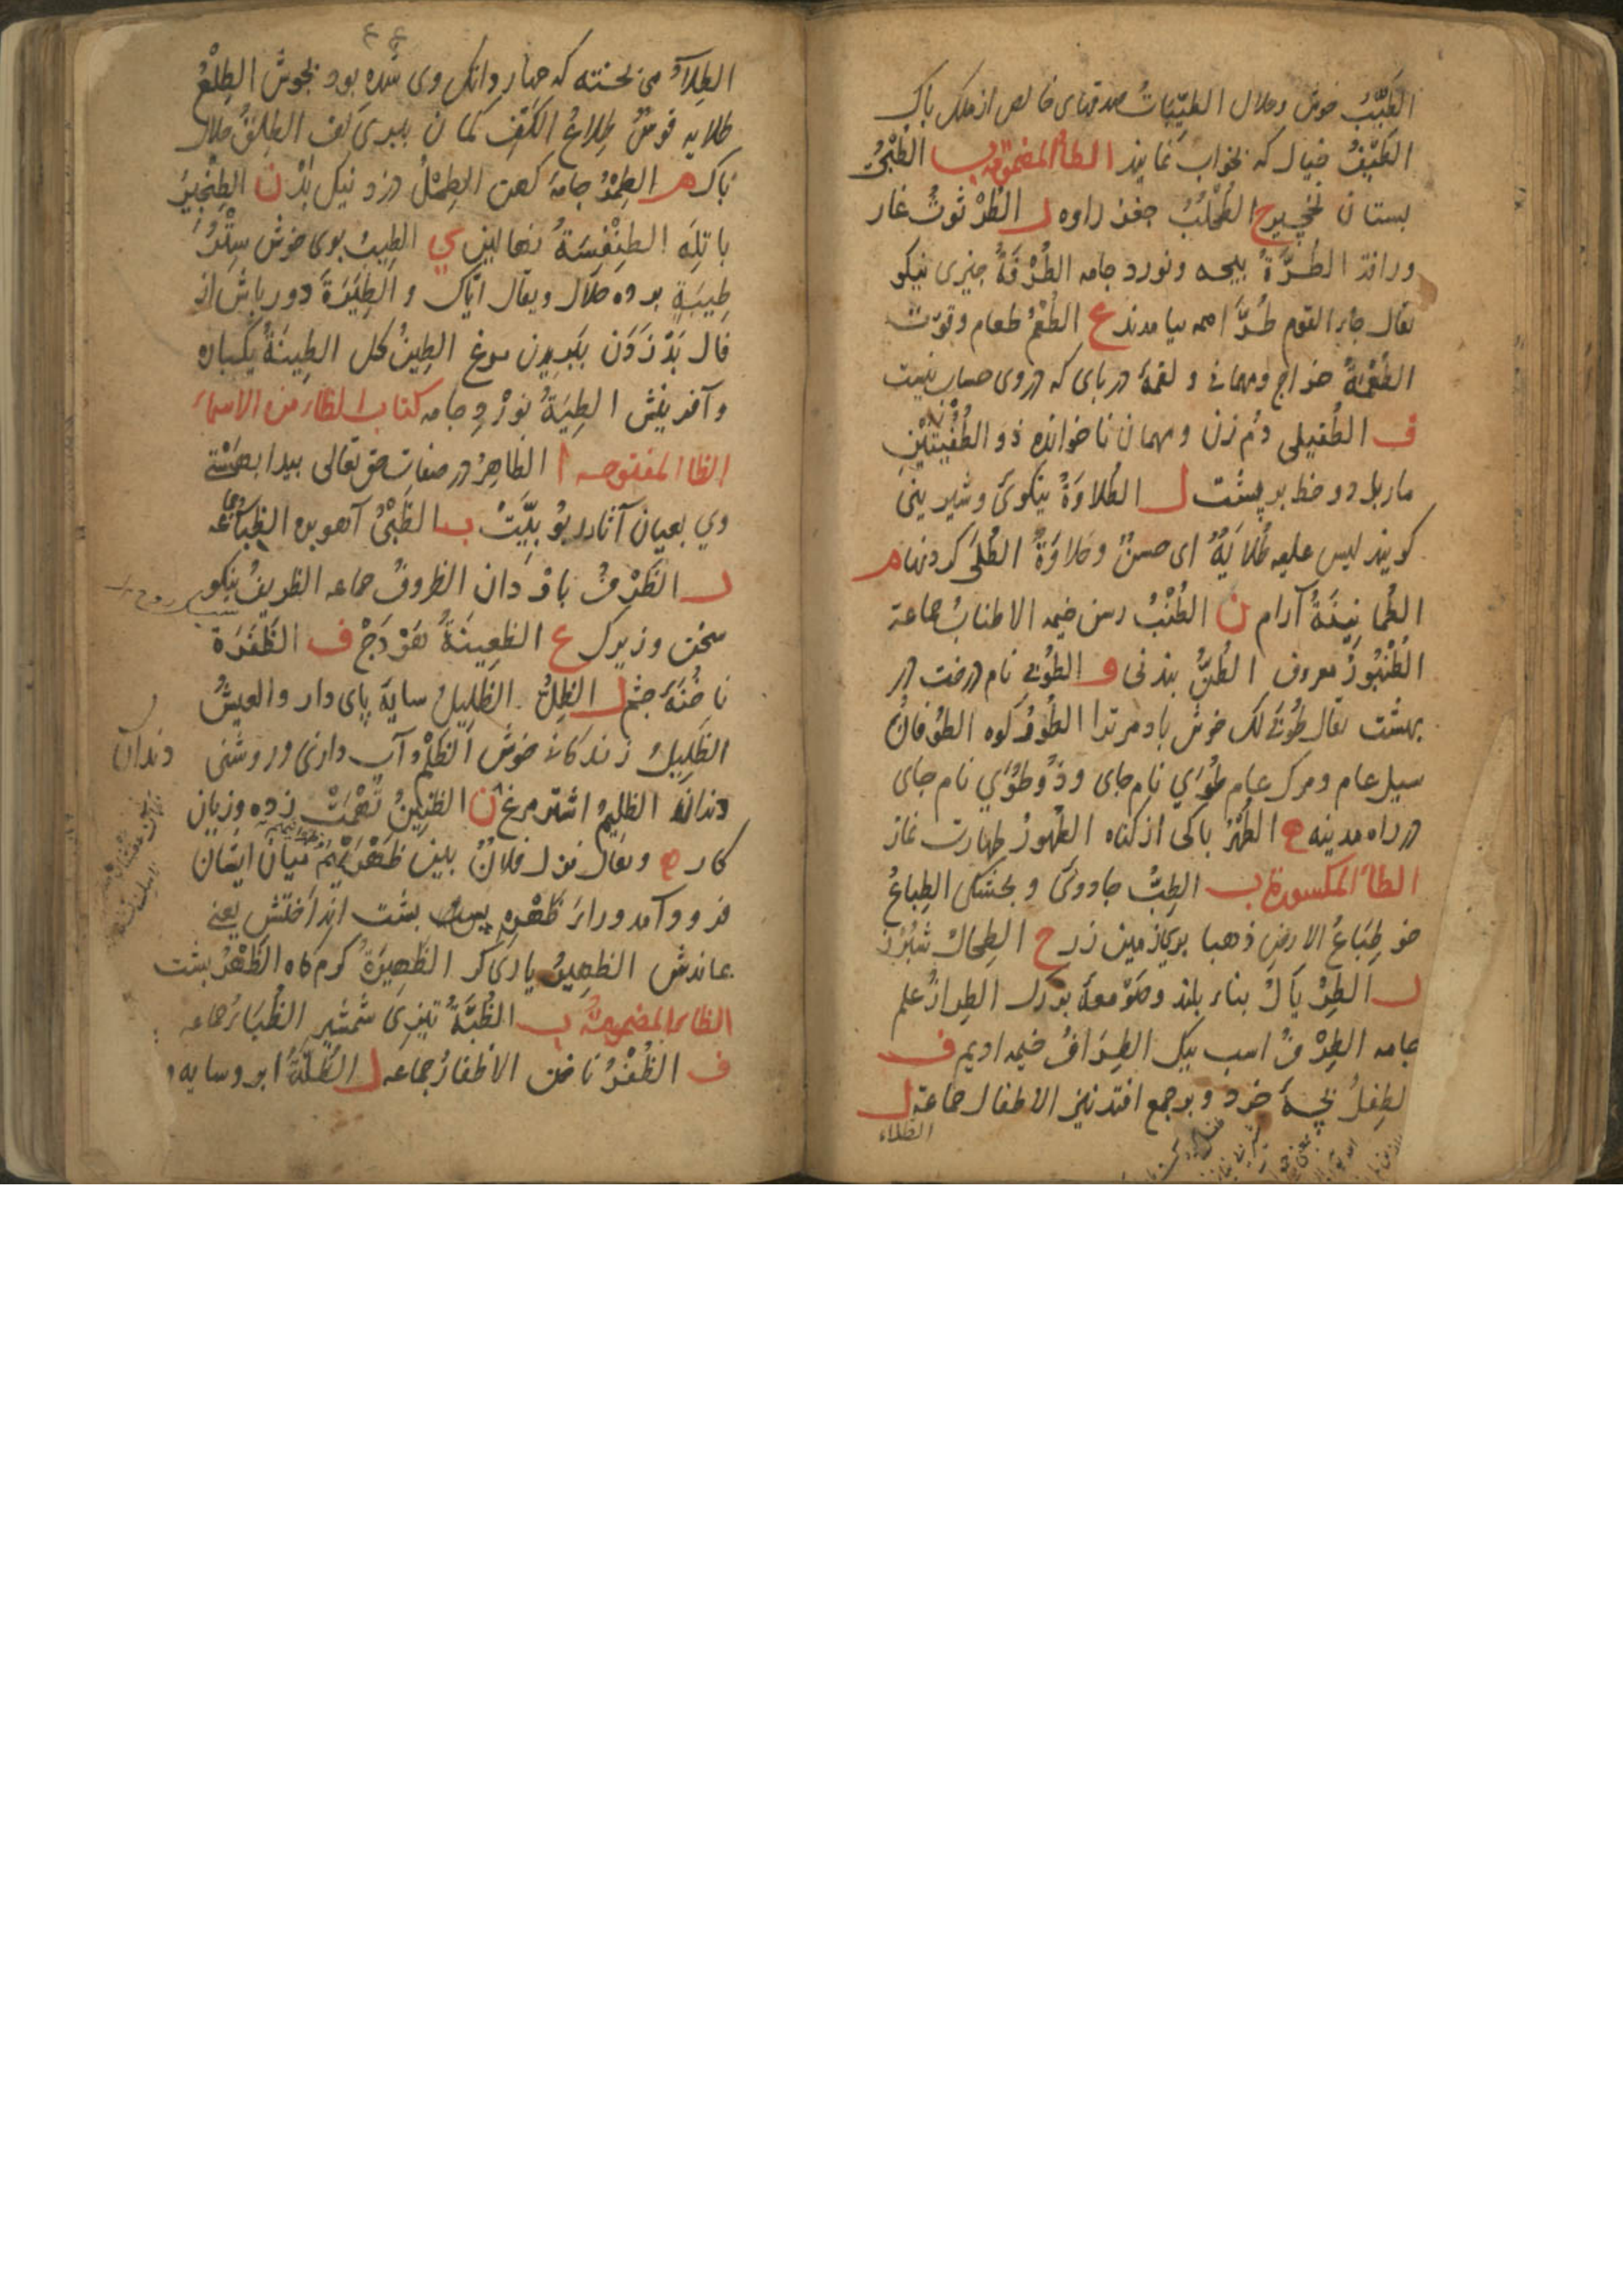 الطَّیِّبُ خوش و حلال الطیِّبَاتُ صدقهای خالص از ملک پاک
الطَّیْفُ خیال که بخواب نماید الطاء المضمومة ب الطُبْیُ
بستان نخچیر ح الطُحْلُبُ جغز راوه ر الطُرْثوثُ غار
الطُرَّةُ پیچه و نورد جامه الطُرْفَةُ چیزی نیکو
یقال جاء القوم طُرًّا همه بیامدند ع الطُعْمُ طعام و قوّت
الطُعْمَةُ خراج و مهمانی و لقمهٔ در بای که در وی حساب نیست
ف الطُفیلی دم زن و مهمان ناخوانده ذو الطُفْیَتَیْنِ
مار بل دو خط بر پشت ل الطُلاوَةُ نیکوی و شیرینی
کویند لیس علیه طُلایَةٌ ای حسنٌ و حلاوَةٌ الطُلَی کردنها م
الطُمانِینَةُ آرام ن الطُنْبُ رسن خیمه الاطنابُ جماعة
الطُنْبُورُ معروف الطُنُّ بندنی و الطُوبی نام درخت در
بهشت یقال طُوبی لک خوش باد مر ترا الطُورُ کوه الطُوفانُ
سیل عام و مرک عام طُوَی نام جای و ذُو طُوَی نام جای
در راه مدینه ه الطُهْرُ پاکی از کناه الطُهورُ طهارت نماز
الطاء المکسورة ب الطِبُّ جادوی و بجشکی الطِباعُ
خو طِبَاعُ الارض ذهبا پری زمین زر ح الطِحالُ سُپُرز
ر الطِرْبالُ بناء بلند و صَوْمعهٔ بزرک الطِرازُ علم
جامه الطِرْفُ اسب نیک الطِرَافُ خیمه ادیم ف
لطِفلُ بچهٔ خرد و بر جمع افتد نیز الاطفال جماعة ل
الطلاء
الطِلآءُ می پخته که چهار دانک وی شده بود بجوش الطِلْعُ
طلایه قوسٌ طِلاعُ الکَفِّ کمان بپری کف الطِلْقُ حلال
پاک م الطِمْرُ جامهٔ کهن الطِمْلُ دزد نیک بَدْ ن الطِنْجِیرُ
باتِلَه الطِنْفِسَةُ نهالین ی الطِیبُ بوی خوش سَبْیٌ
طِیبَةٍ برده حلال و یقال ایّاک و الطِیَرَةَ دور باش از
فال بَدْ زَدَن بپریدن مرغ الطِینُ کل الطِینَةُ یکباره
و آفرینش الطِیَةُ نورْدِ جامه کتاب الظاء من الاسماء
الظا المفتوحه ا الظاهِرُ در صفات حق تعالی پیدا بهستی
وی بعیان آثار ربوبیَّت ب الظَبْیُ آهو بره الظِبَاءُ جماعه
ر الظَرْفُ باردان الظروفُ جماعه الظریفُ نیکو
سخن و زیرک ع الظعِینَةُ هَوْدَجْ ف الظَفَرَة
ناخُنَهٔ چشم ل الظِلُّ الظَلِیلُ سایهٔ پای دار والعیشُ
الظَلِیلُ زندکانی خوش الظَلْمُ آب داری و روشنی
دندان
دندانها الظلِیمُ اشتر مرغ ن الظنِینُ تُهْمَتْ زده و زیان
کار ه و یقال نزل فلانٌ بین ظَهْرَیْهِمْ میان ایشان
فرود آمد و راءَ ظَهْرِهِ پس پشت انداختش یعنی
بماندش الظهیرُ یاری کر الظَهِیرَةُ کرم کاه الظَهْرُ پشت
الظاء المضمومة ب الظُبَةُ تیزی شمشیر الظُبَاءُ جماعه
ف الظُفْرُ ناخن الاظفارُ جماعه ل الظُلَّةُ ابر و سایه